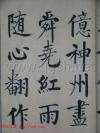 億神州盡
舜堯紅雨
随心翻作